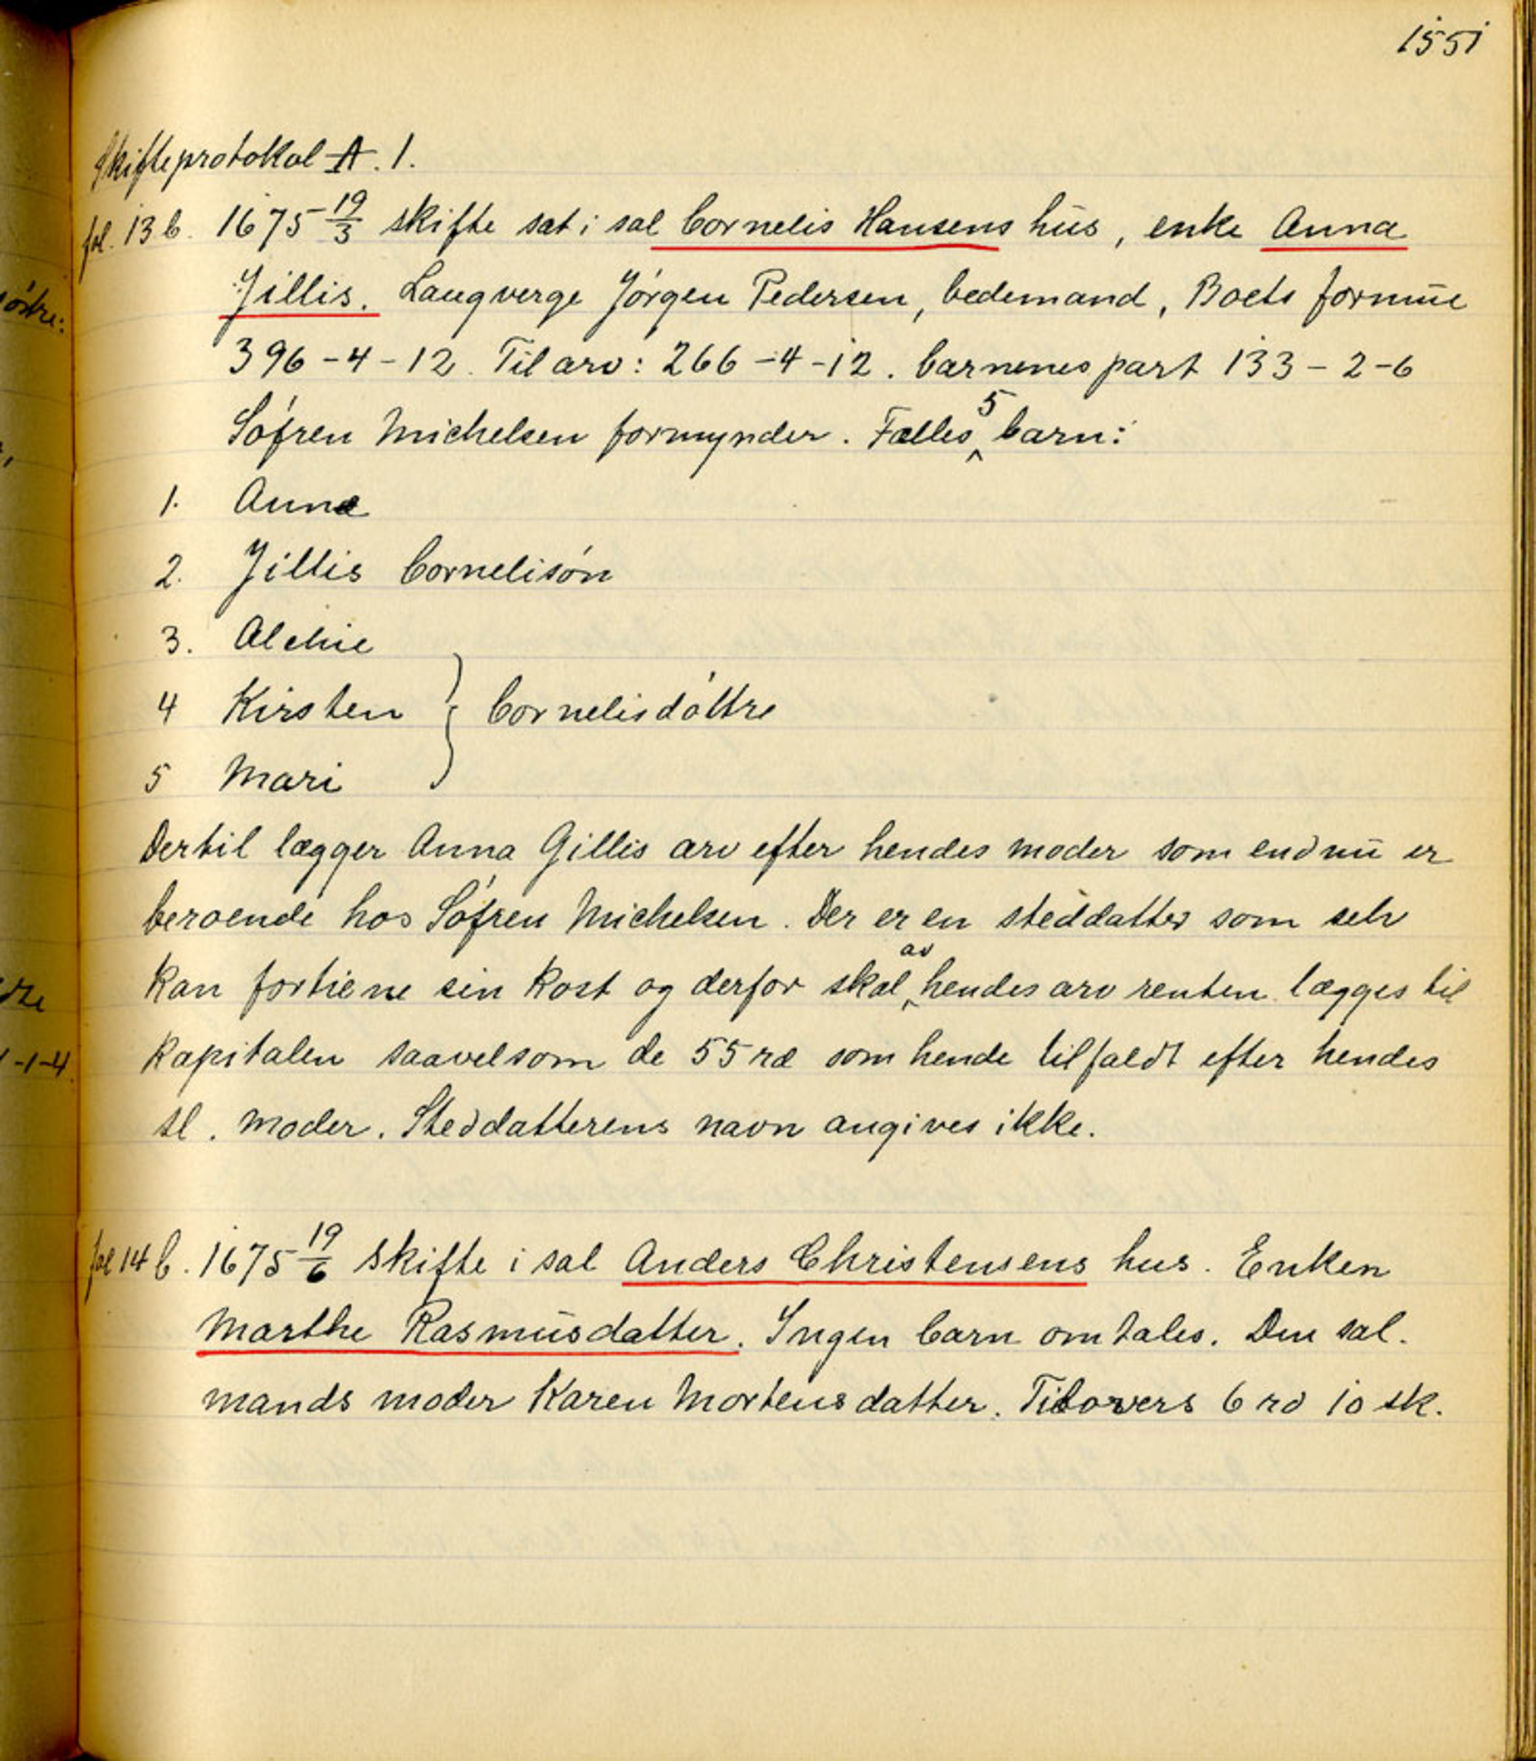 1551
Skifteprotokol A. 1.
fol. 13 b. 1675 19/3 skifte sat i sal Cornelis Hansens hus, enke Anna
Jillis. Laugverge Jørgen Pedersen, bedemand, Boets formue
396-4-12. Til arv: 266-4-12. barnenes part 133-2-6
Søfren Michelsen formynder. Fælles 5 barn:
1. Anna
2. Jillis Cornelisøn
3. Alchie
4 Kirsten } Cornelisdøttre
5 Mari
Dertil lægger Anna Gillis arv efter hendes moder som endnu er
beroende hos Søfren Michelsen. Der er en steddatter som selv
kan fortiene sin kost og derfor skal av hendes arv renten lægges til
kapitalen saavelsom de 55 rd som hende tilfaldt efter hendes
sl. moder. Steddatterens navn angives ikke.
fol 14 b. 1675 19/6 skifte i sal Anders Christensens hus. Enken
Marthe Rasmusdatter. Ingen barn omtales. Den sal.
mands moder Karen Mortensdatter. Tilovers 6 rd 10 sk.